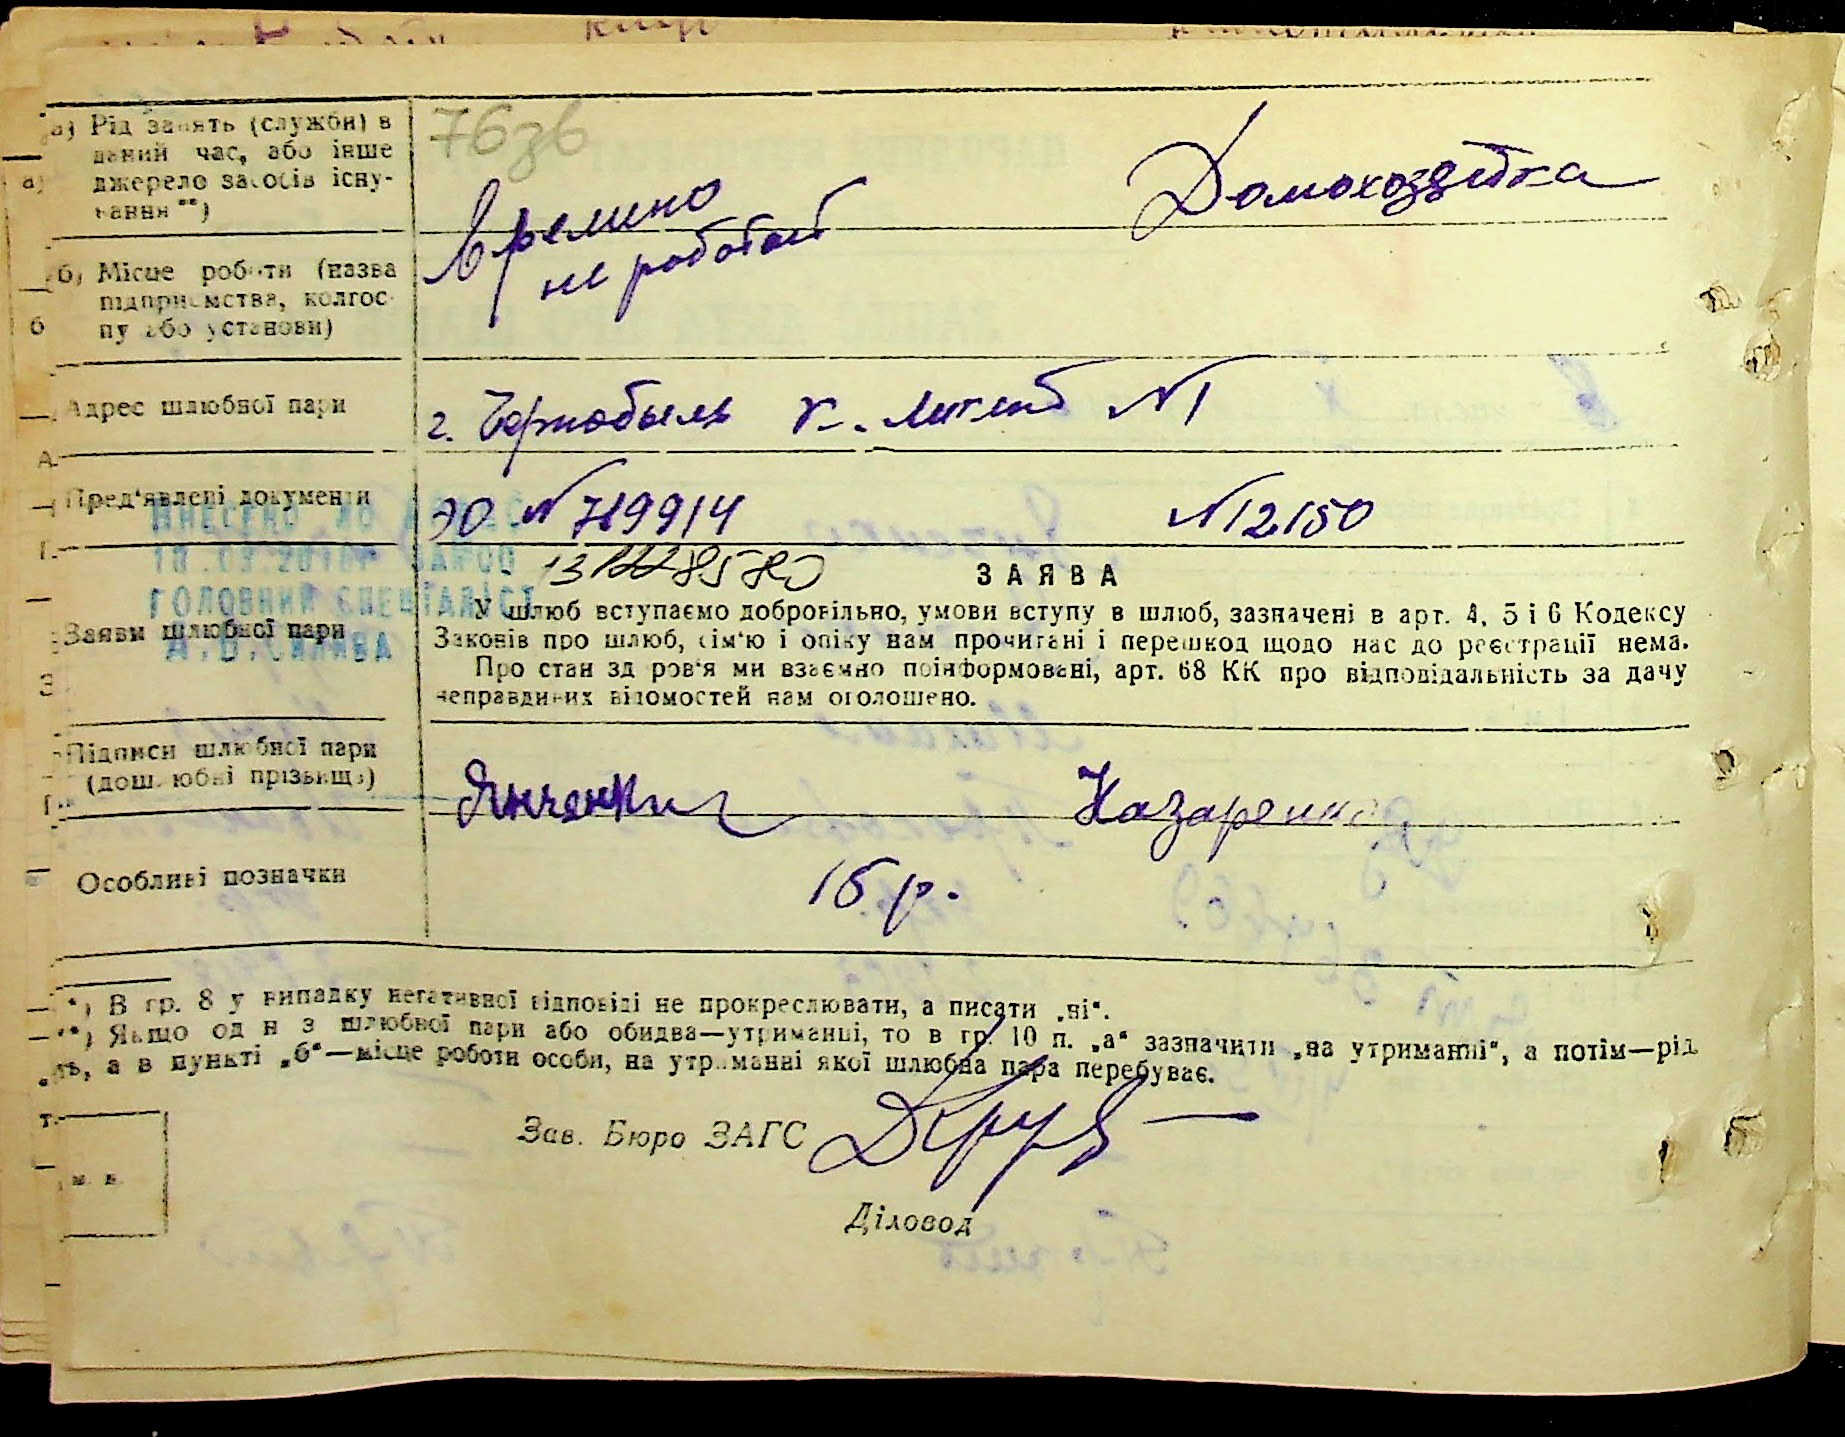 а) Рід занять (служби) в
даний час, або інше
джерело засобів існу-
вання **)
76зв
Времено
не работает
Домохозяйка
б) Місце роботи (назва
підприємства, колгос-
пу або установи)
Адрес шлюбної пари
г. Чернобыль №1
Пред'явлені документи
ЭЮ № 719914
№12150
ЗАЯВА
Заяви шлюбної пари
У шлюб вступаємо добровільно, умови вступу в шлюб, зазначені в арт. 4, 5 і 6 Кодексу
Законів про шлюб, сім'ю і опіку нам прочитані і перешкод щодо нас до реєстрації нема.
Про стан здоров'я ми взаємно поінформовані, арт. 68 КК про відповідальність за дачу
неправдивих відомостей нам оголошено.
ГОЛОВНИЙ СПЕЦІАЛІСТ
Підписи шлюбної пари
(дошлюбні прізвища)
Назаренко
Особливі позначки
15 р.
*) В гр. 8 у випадку негативної відповіді не прокреслювати, а писати „ні“.
**) Якщо один з шлюбної пари або обидва—утриманці, то в гр. 10 п. „а“ зазначити „на утриманні“, а потім—рід
а в пункті „б“—місце роботи особи, на утриманні якої шлюбна пара перебуває.
Зав. Бюро ЗАГС
Діловод